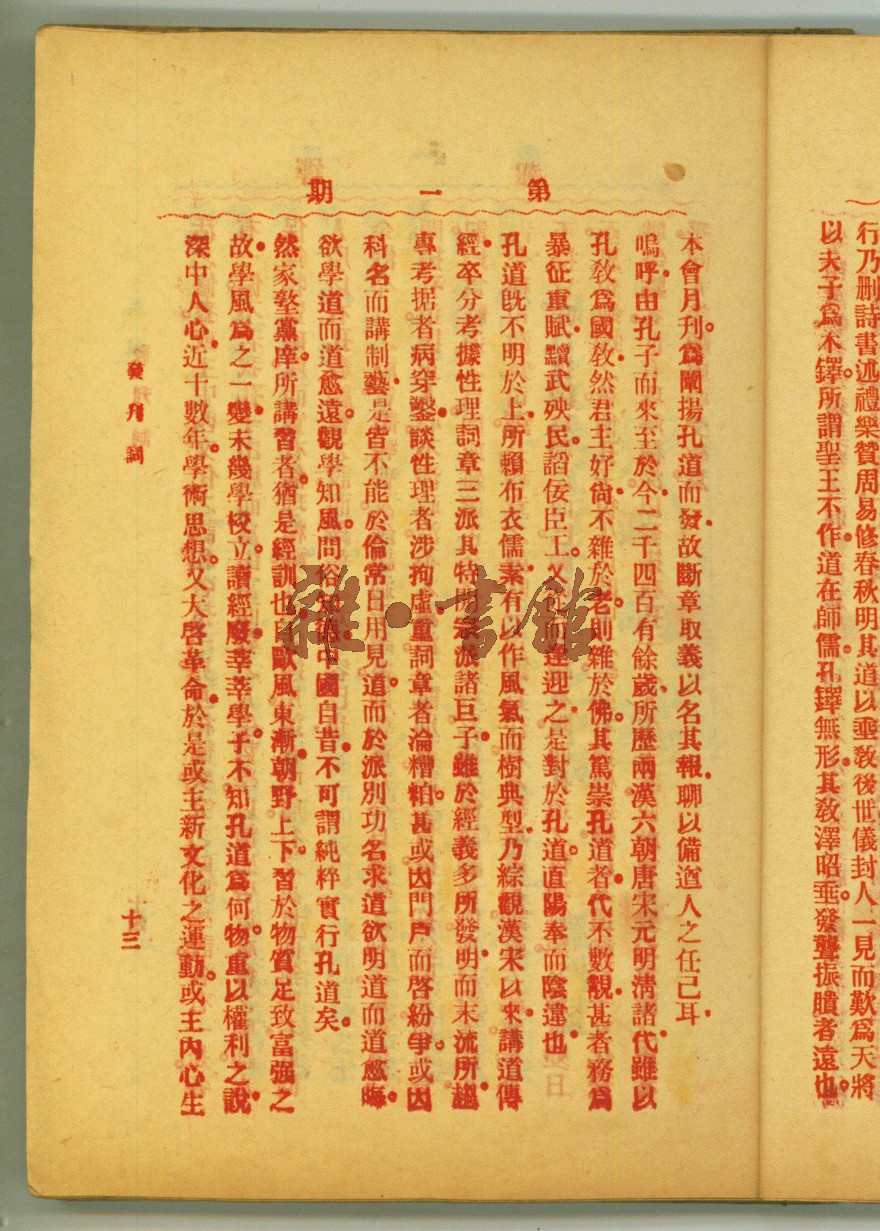 行乃删詩書述禮樂贊周易修春秋明其道以垂敎後世儀封人一見而歎爲天將
以夫子爲木鐸所謂聖王不作道在師儒孔鐸無形其敎澤昭垂發聾振瞶者遠也
第一期
本會月刊爲闡揚孔道而發故斷章取義以名其報聊以備遒人之任已耳
嗚呼由孔子而來至於今二千四百有餘歲所歷兩漢六朝唐宋元明清諸代雖以
孔敎爲國敎然君主好尙不雜於老則雜於佛其篤崇孔道者代不數觀甚者務爲
暴征重賦黷武殃民謟佞臣工又從而逢迎之是對於孔道直陽奉而陰違也
孔道旣不明於上所賴布衣儒素有以作風氣而樹典型乃綜觀漢宋以來講道傳
經卒分考據性理詞章三派其特開宗派諸巨子雖於經義多所發明而末流所趨
專考据者病穿鑿談性理者涉拘虛重詞章者淪糟粕甚或因門戶而啓紛爭或因
科名而講制藝是皆不能於倫常日用見道而於派別功名求道欲明道而道愈晦
欲學道而道愈遠觀學知風問俗知德中國自昔不可謂純粹實行孔道矣
然家塾黨庠所講習者猶是經訓也自歐風東漸朝野上下習於物質足致富强之
故學風爲之一變未幾學校立讀經廢莘莘學子不知孔道爲何物重以權利之說
深中人心近十數年學術思想又大啓革命於是或主新文化之運動或主內心生
發刊詞
十三
雜·書館